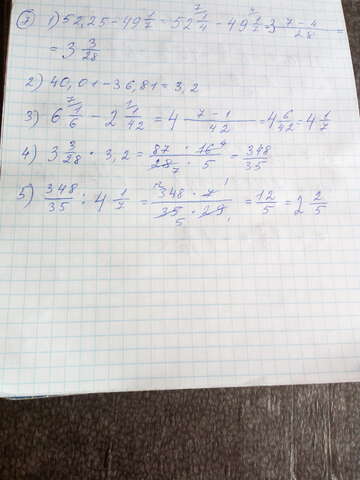 7) 1) 52,25 - 49 1/7 = 52 1/4 - 49 1/7 = 3 (7 - 4)/28 =
= 3 3/28
2) 40,01 - 36,81 = 3,2
3) 6 1/6 - 2 1/42 = 4 (7 - 1)/42 = 4 6/42 = 4 1/7
4) 3 3/28 · 3,2 = (87 · 16)/(28 · 5) = 348/35
5) 348/35 : 4 1/7 = (348 · 7)/(35 · 29) = 12/5 = 2 2/5